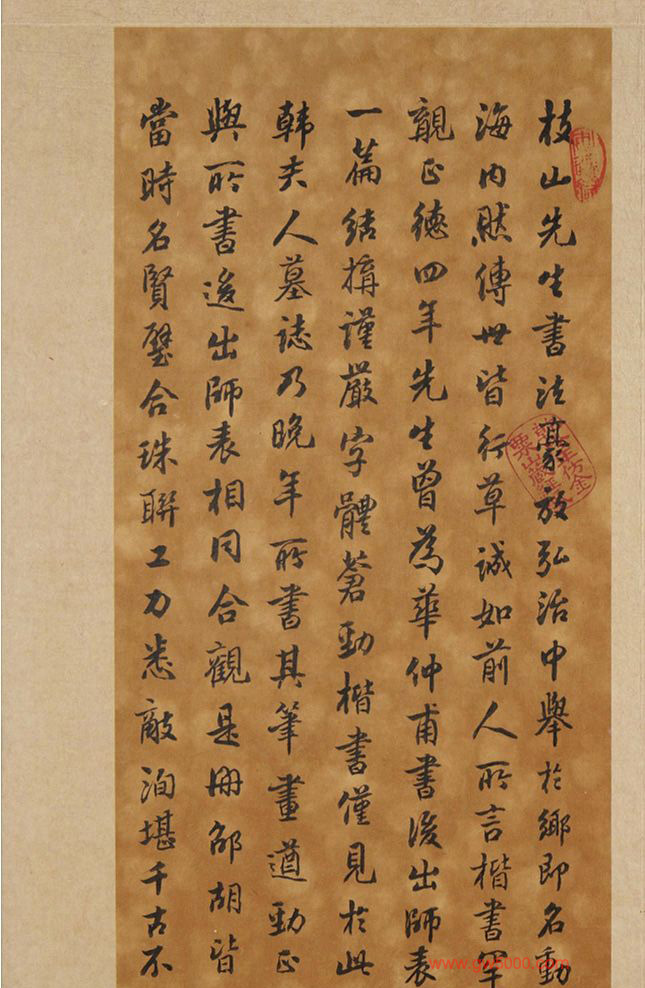 枝山先生書法豪放弘治中舉於鄉即名動
海内然傳世皆行草誠如前人所言楷書罕
覯正德四年先生曾為華仲甫書後出師表
一篇結搆謹嚴字體蒼勁楷書僅見於此
韩夫人墓誌乃晚年所書其筆畫遒勁正
與所書後出師表相同合觀是冊邵胡皆
當時名賢璧合珠聯工力悉敵洵堪千古不
www.gw8000.com